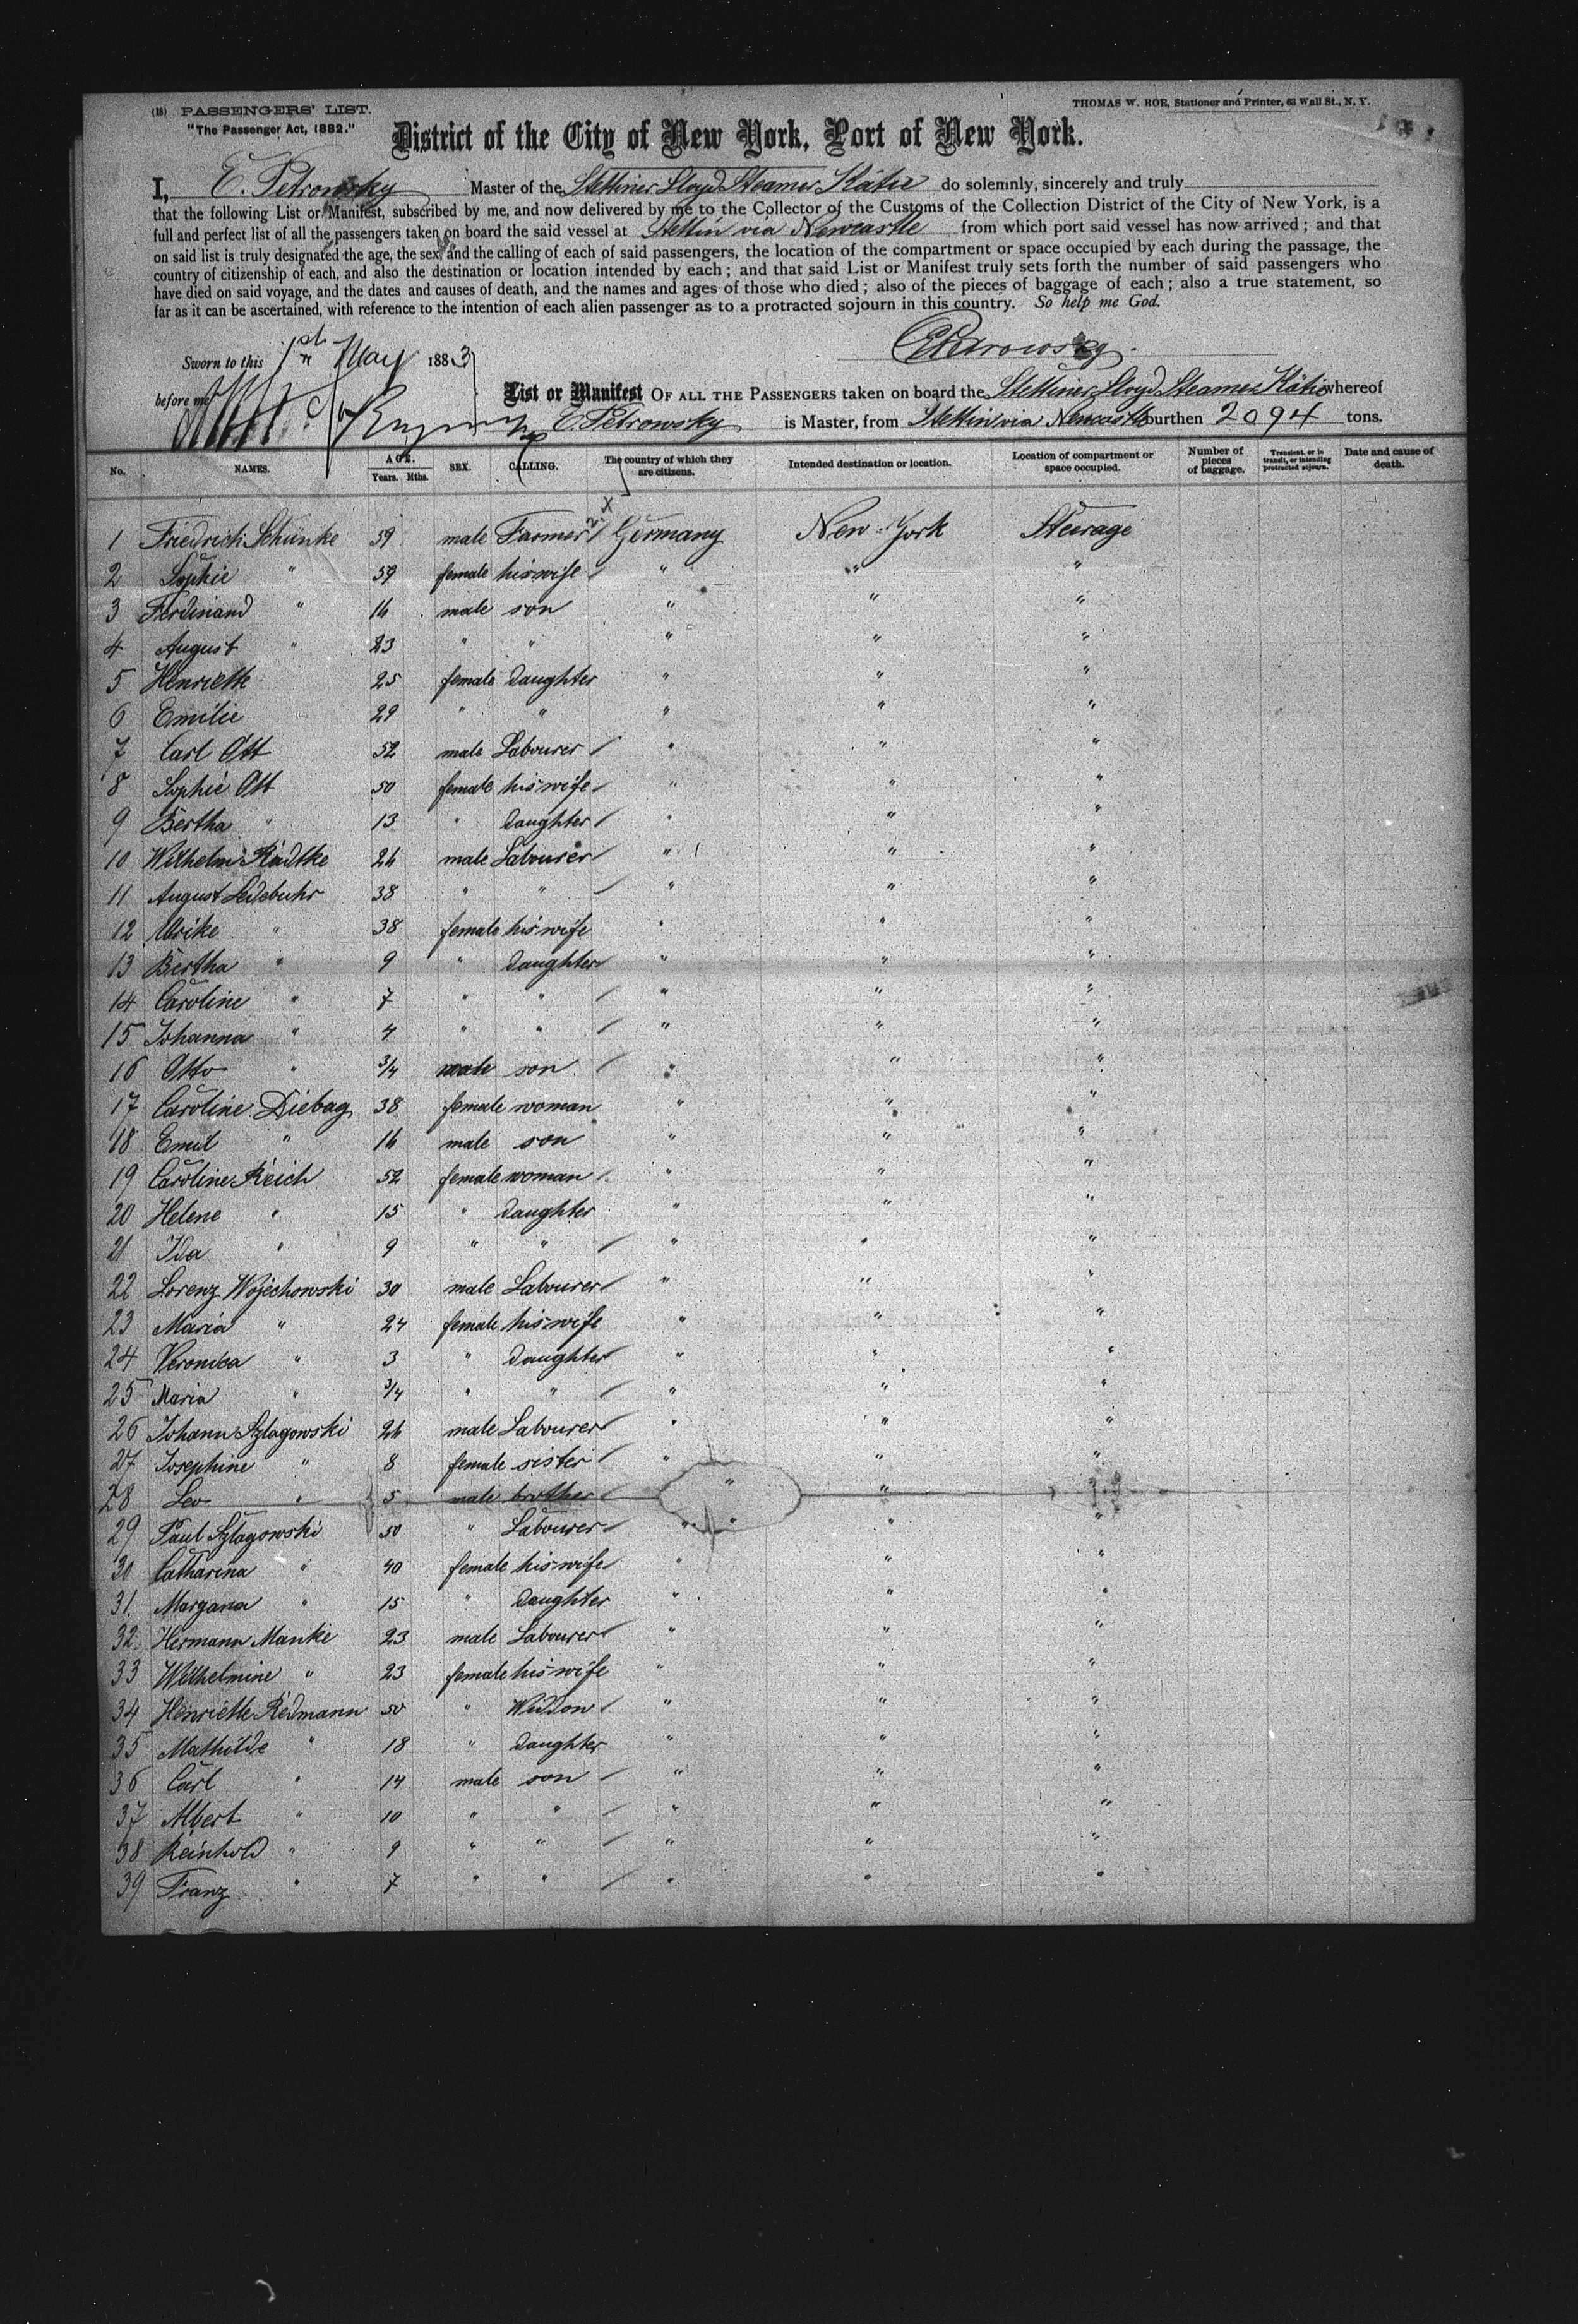 (18) PASSENGERS' LIST.
THOMAS W. ROE, Stationer and Printer, 63 Wall St., N. Y.
"The Passenger Act, 1882."
District of the City of New York, Port of New York.
I, E. Petrowsky Master of the Stettiner Lloyd Steamer Kätie do solemnly, sincerely and truly
that the following List or Manifest, subscribed by me, and now delivered by me to the Collector of the Customs of the Collection District of the City of New York, is a
full and perfect list of all the passengers taken on board the said vessel at Stettin via Newcastle from which port said vessel has now arrived; and that
on said list is truly designated the age, the sex, and the calling of each of said passengers, the location of the compartment or space occupied by each during the passage, the
country of citizenship of each, and also the destination or location intended by each; and that said List or Manifest truly sets forth the number of said passengers who
have died on said voyage, and the dates and causes of death, and the names and ages of those who died; also of the pieces of baggage of each; also a true statement, so
far as it can be ascertained, with reference to the intention of each alien passenger as to a protracted sojourn in this country. So help me God.
E Petrowsky.
Sworn to this 1st May 1883
before me
List or Manifest OF ALL THE PASSENGERS taken on board the Stettiner Lloyd Steamer Kätie whereof
E. Petrowsky is Master, from Stettin via Newcastle burthen 2094 tons.
No. NAMES. AGE. Years. Mths. SEX. CALLING. The country of which they are citizens. Intended destination or location. Location of compartment or space occupied. Number of pieces of baggage. Transient, or in transit, or intending protracted sojourn. Date and cause of death.
1 Friedrich Schünke 59 male Farmer Germany New-York Steerage
2 Sophie " 59 female his wife " " "
3 Ferdinand " 16 male son " " "
4 August " 23 " " " " "
5 Henriette 25 female daughter " " "
6 Emilie 29 " " " " "
7 Carl Ott 52 male Labourer " " "
8 Sophie Ott 50 female his wife " " "
9 Bertha " 13 " daughter " " "
10 Wilhelm Radtke 26 male Labourer " " "
11 August Ledebuhr 38 " " " " "
12 Ulrike " 38 female his wife " " "
13 Bertha " 9 " daughter " " "
14 Caroline " 7 " " " " "
15 Johanna " 4 " " " " "
16 Otto " 3/4 male son " " "
17 Caroline Diebag 38 female woman " " "
18 Emil " 16 male son " " "
19 Caroline Reich 52 female woman " " "
20 Helene " 15 " daughter " " "
21 Ida " 9 " " " " "
22 Lorenz Wojechowski 30 male Labourer " " "
23 Maria " 24 female his wife " " "
24 Veronika " 3 " daughter " " "
25 Maria " 3/4 " " " " "
26 Johann Szlagowski 26 male Labourer " " "
27 Josephine " 8 female sister " " "
28 Leo " 5 male brother " " "
29 Paul Szlagowski 50 " Labourer " " "
30 Catharina " 40 female his wife " " "
31. Margana " 15 " daughter " " "
32 Hermann Manke 23 male Labourer " " "
33 Wilhelmine " 23 female his wife " " "
34 Henriette Redmann 50 " Widdow " " "
35 Mathilde " 18 " daughter " " "
36 Carl " 14 male son " " "
37 Albert " 10 " " " " "
38 Reinhold " 9 " " " " "
39 Franz " 7 " " " " "